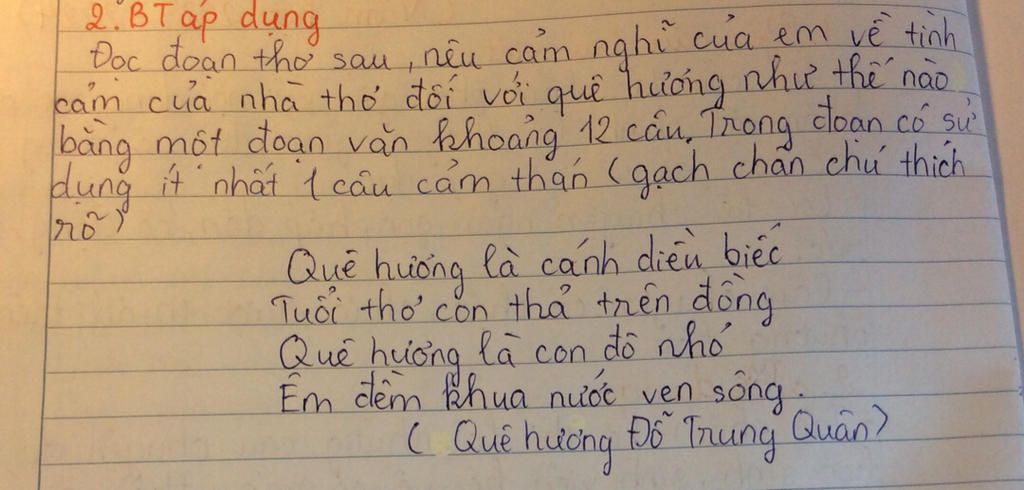 2. BT áp dụng
Đọc đoạn thơ sau, nêu cảm nghĩ của em về tình
cảm của nhà thơ đối với quê hương như thế nào
bằng một đoạn văn khoảng 12 câu. Trong đoạn có sử
dụng ít nhất 1 câu cảm thán (gạch chân chú thích
rõ)
Quê hương là cánh diều biếc
Tuổi thơ con thả trên đồng
Quê hương là con đò nhỏ
Êm đềm khua nước ven sông.
( Quê hương Đỗ Trung Quân)